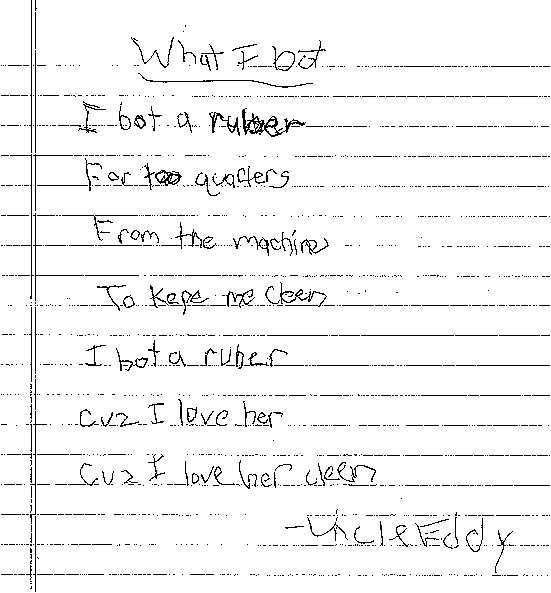 What I bot
I bot a ruber
For too quarters
From the machine
To kepe me cleen
I bot a ruber
cuz I love her
cuz I love her cleen
-Uncle Eddy